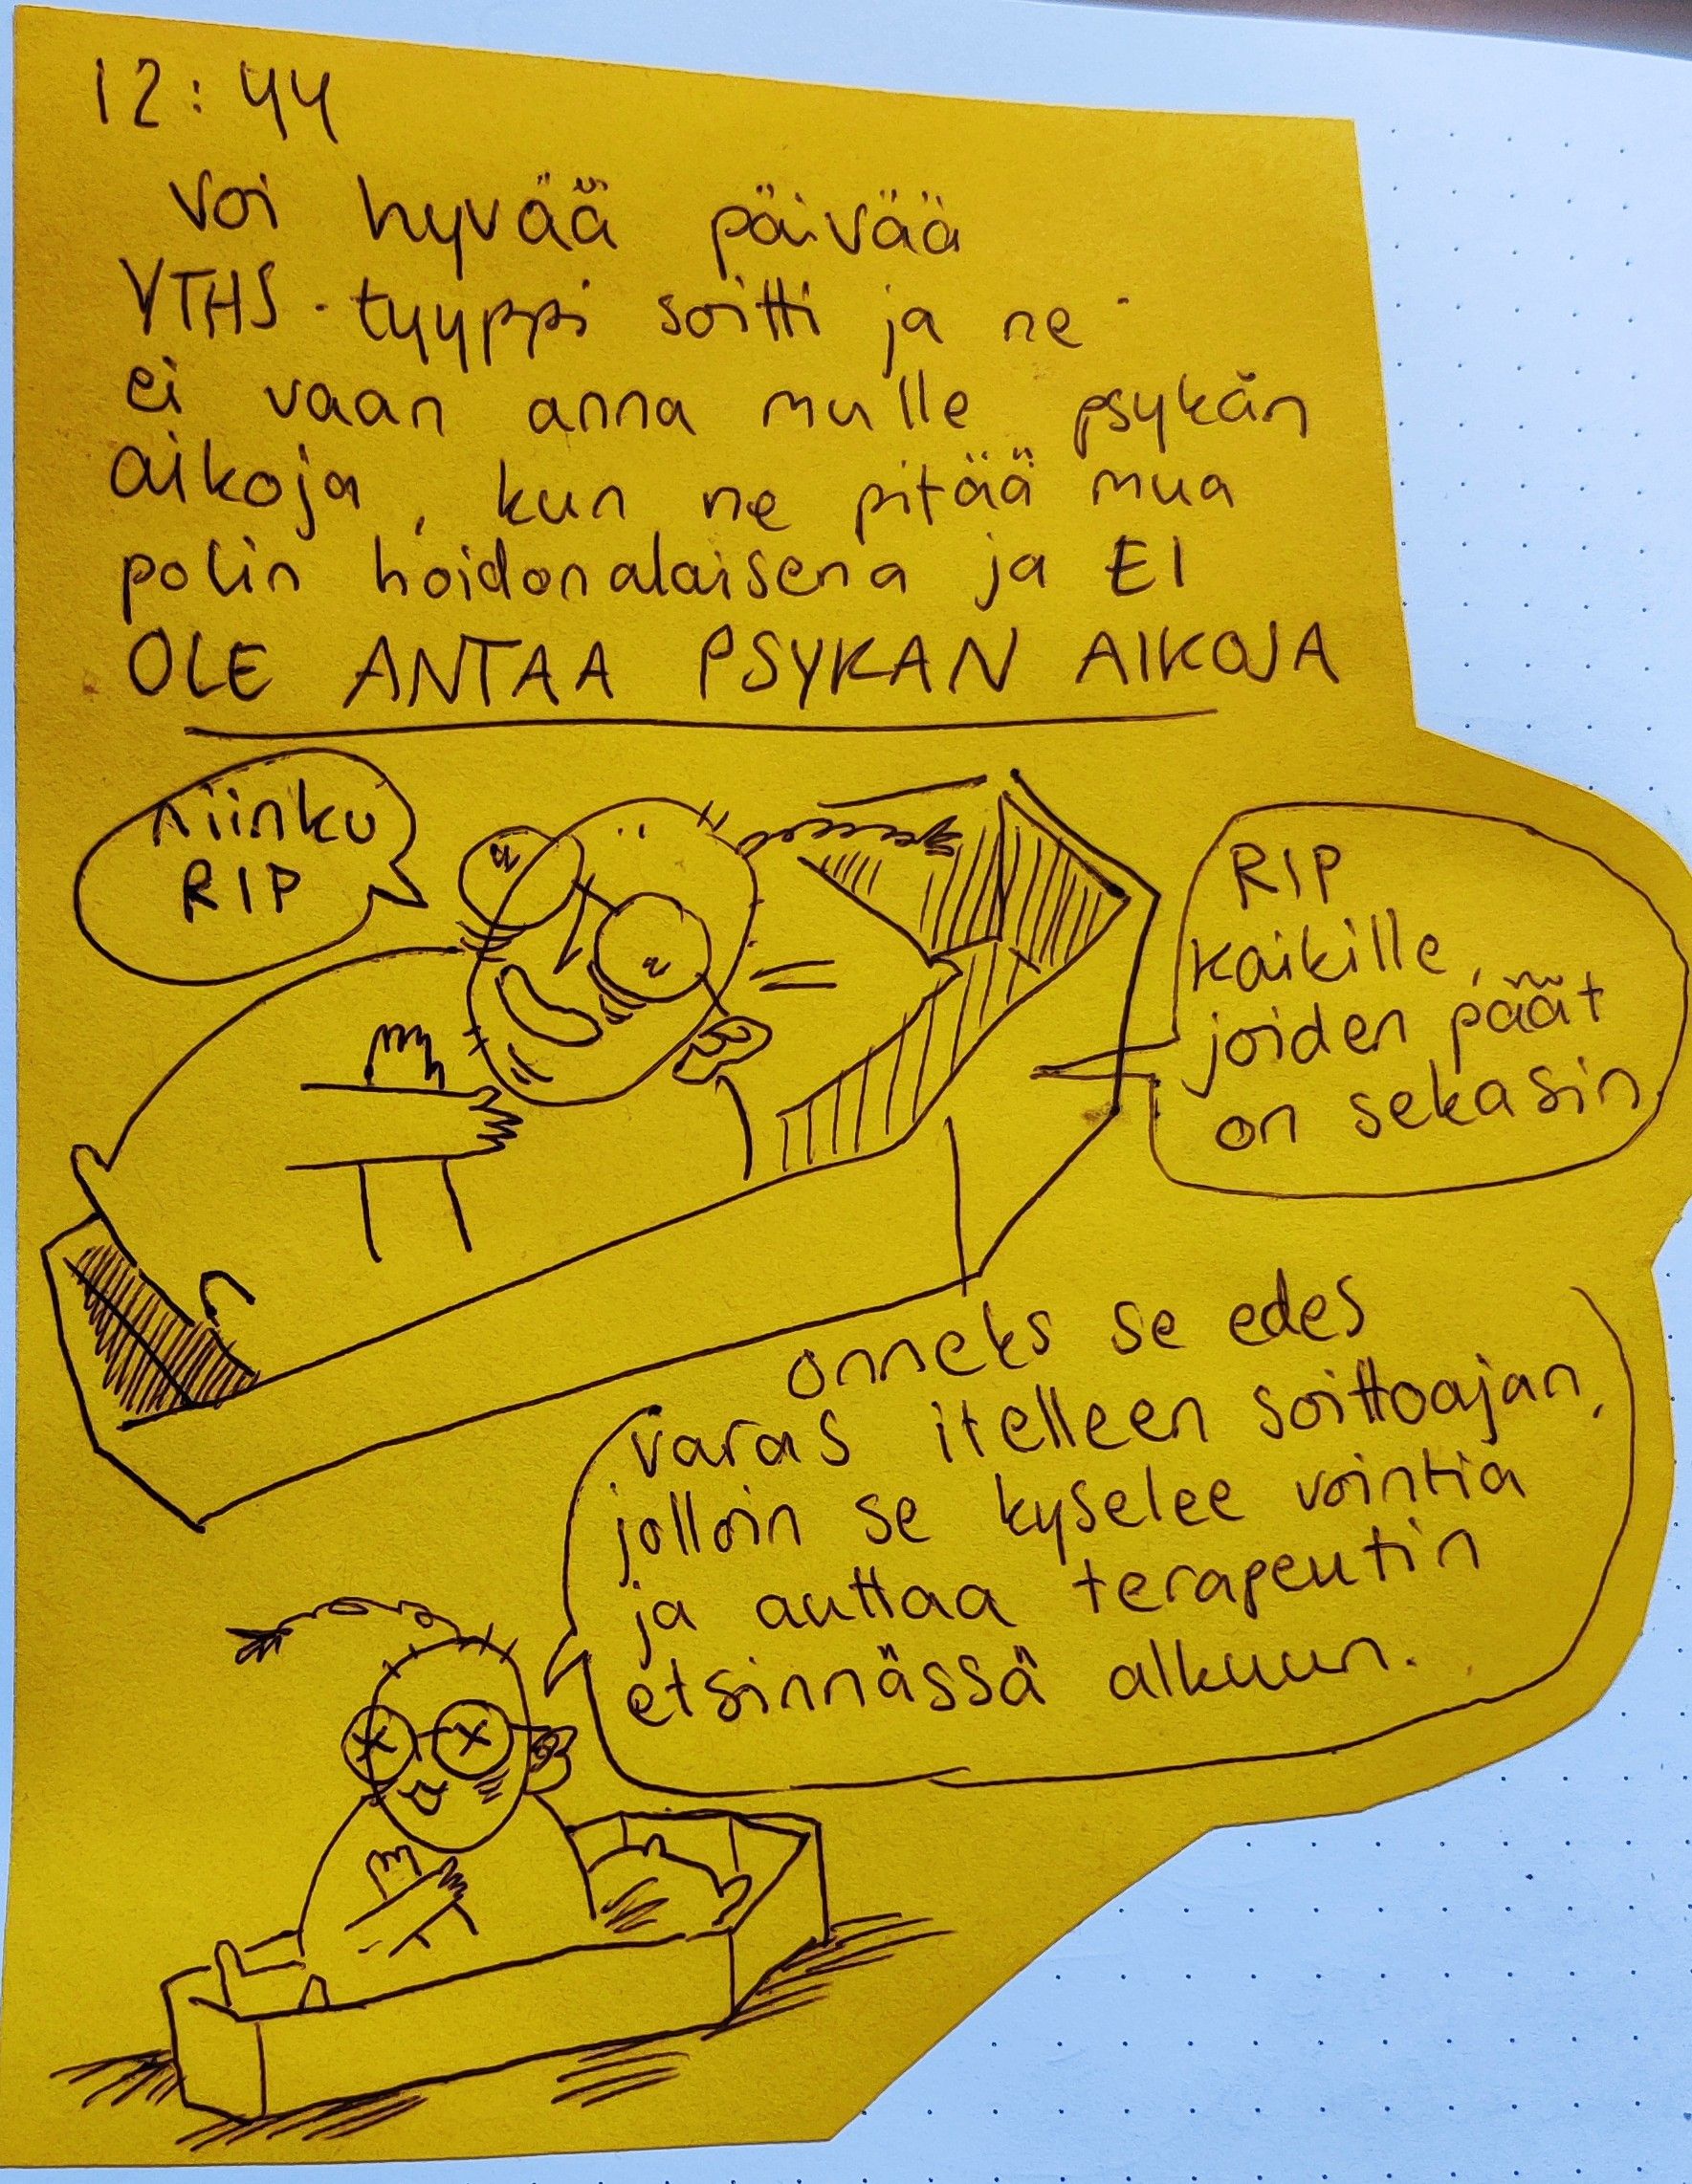 12:44
Voi hyvää päivää
YTHS-tyyppi soitti ja ne
ei vaan anna mulle psykan
aikoja, kun ne pitää mua
polin hoidonalaisena ja EI
OLE ANTAA PSYKAN AIKOJA
niinku
RIP
RIP
kaikille,
joiden päät
on sekasin
onneks se edes
varas itelleen soittoajan,
jolloin se kyselee vointia
ja auttaa terapeutin
etsinnässä alkuun.